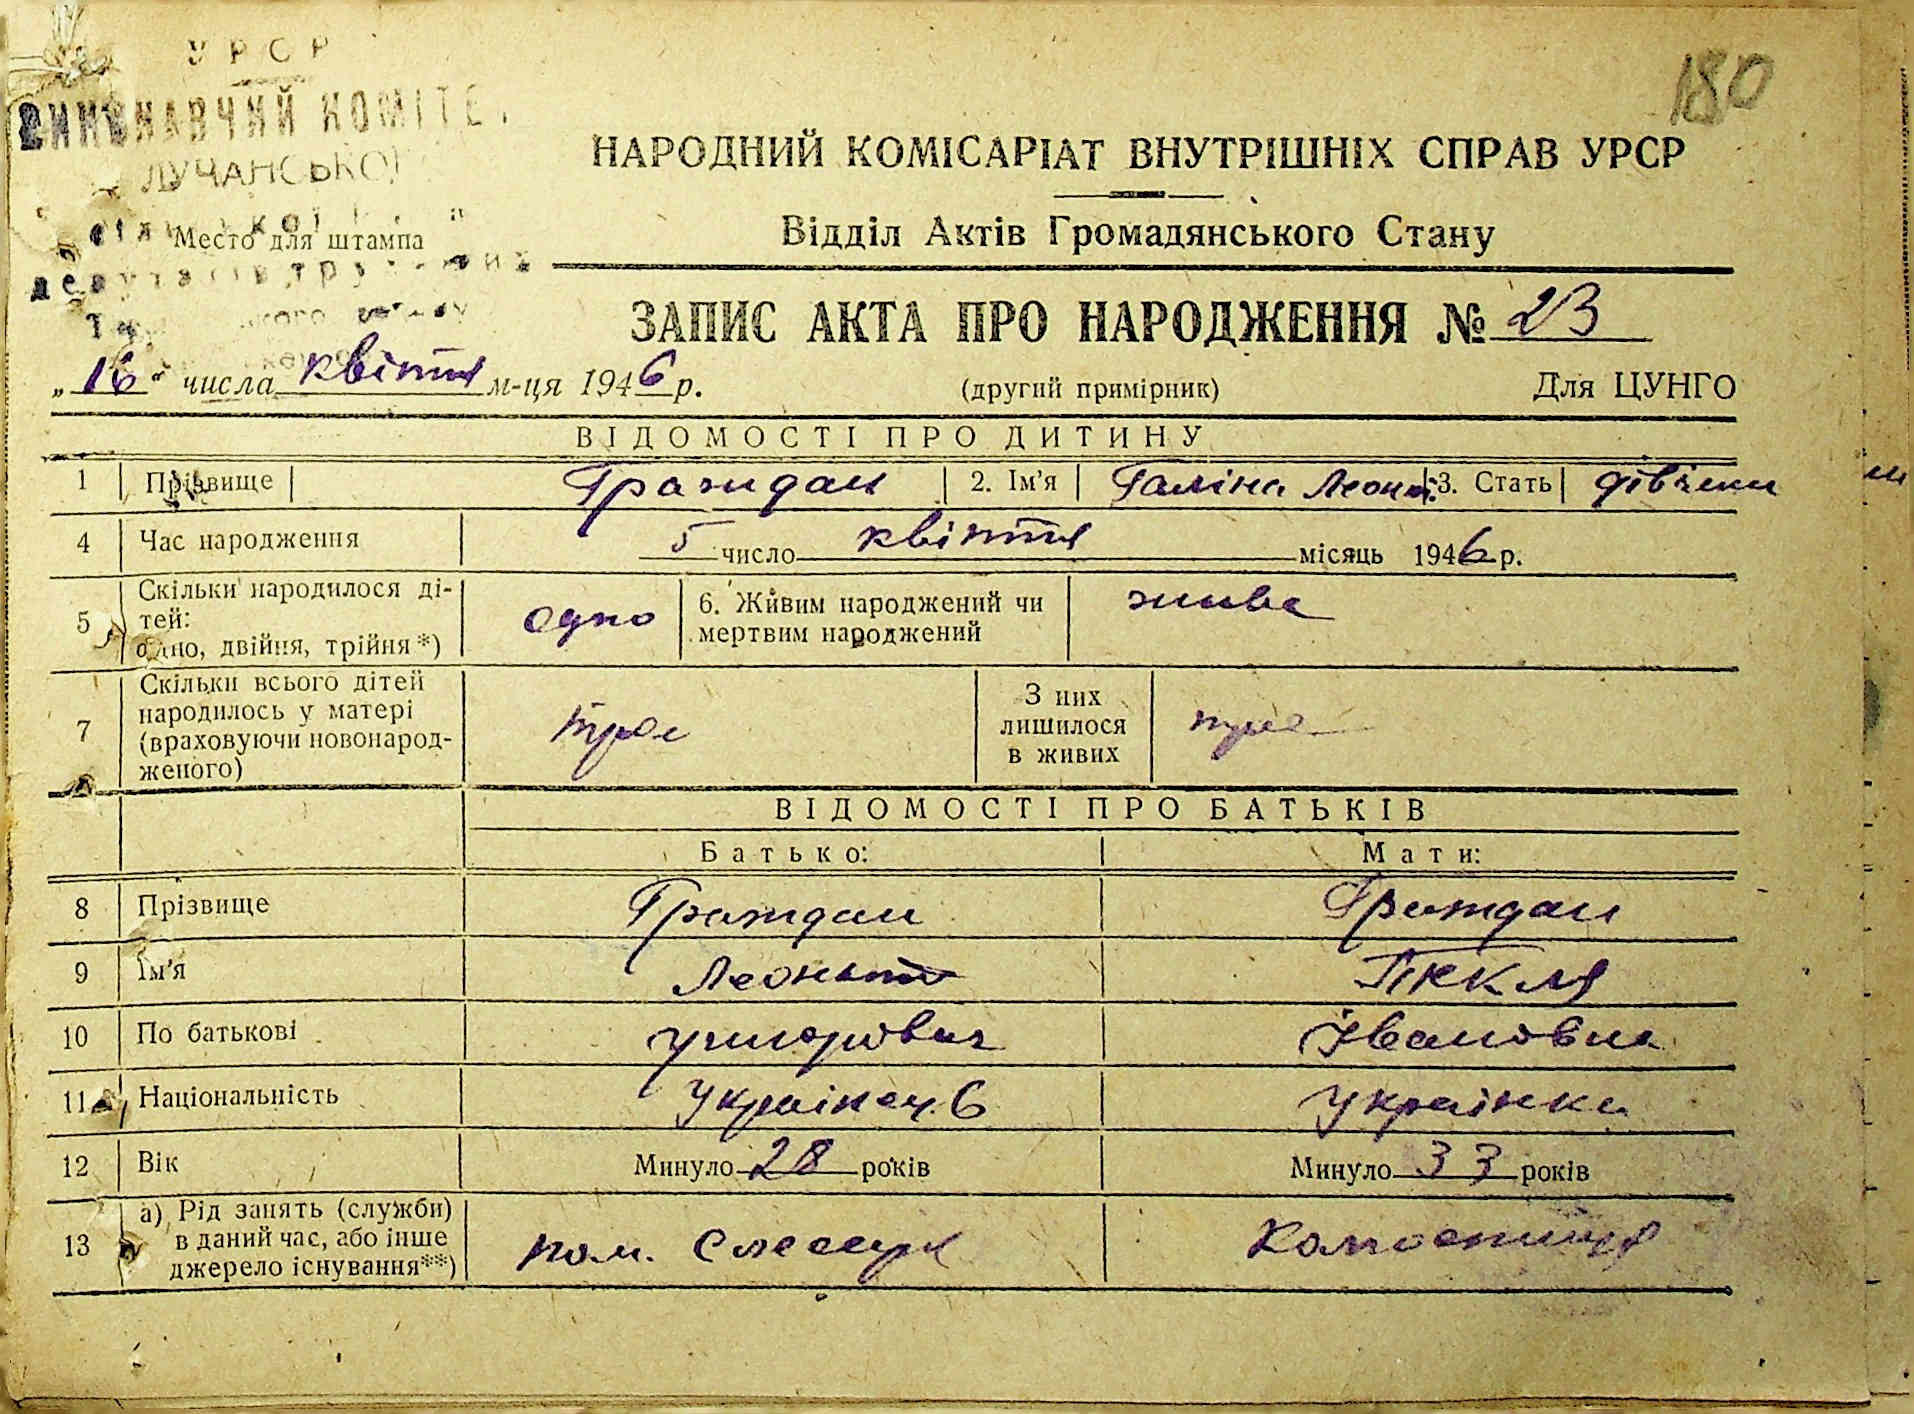 180
УРСР
ВИКОНАВЧИЙ КОМІТЕ
ЛУЧАНСЬКОЇ
Место для штампа
НАРОДНИЙ КОМІСАРІАТ ВНУТРІШНІХ СПРАВ УРСР
Відділ Актів Громадянського Стану
ЗАПИС АКТА ПРО НАРОДЖЕННЯ № 23
„16“ числа квітня м-ця 1946 р. (другий примірник) Для ЦУНГО
ВІДОМОСТІ ПРО ДИТИНУ
1 Прізвище Граждан 2. Ім'я Галіна Леонт. 3. Стать дівчина
4 Час народження 5 число квітня місяць 1946 р.
5 Скільки народилося ді-
тей:
одно, двійня, трійня*) одно 6. Живим народжений чи
мертвим народжений жива
7 Скільки всього дітей
народилось у матері
(враховуючи новонарод-
женого) троє З них
лишилося
в живих троє
ВІДОМОСТІ ПРО БАТЬКІВ
Батько: Мати:
8 Прізвище Граждан Граждан
9 Ім'я Леонтій Текля
10 По батькові Григорович Івановна
11 Національність Українець Українка
12 Вік Минуло 28 років Минуло 33 років
13 а) Рід занять (служби)
в даний час, або інше
джерело існування**) пом. Слесаря Колгоспниця